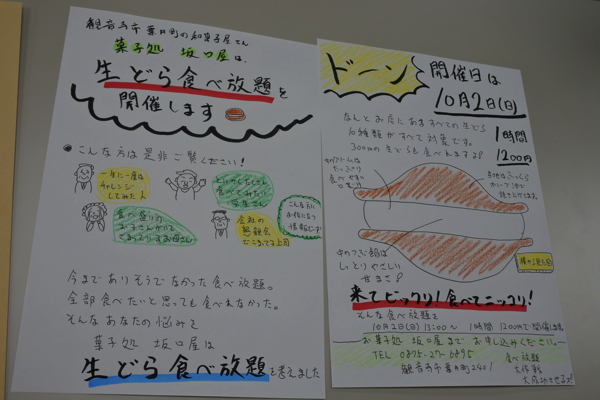 観音寺市豊浜町の和菓子屋さん
菓子処 坂口屋は、
生どら食べ放題を
開催します
こんな方は是非ご覧ください！
一生に一度は
チャレンジ
してみた人
とにかくたくさん
食べてみたい
学生さん
食べ盛りの
お子さんがいて
お母さん
会社の
懇親会
上司
こんな方に
お役に立つ
情報です！
今までありそうでなかった食べ放題。
全部食べたいと思っても食べれなかった。
そんなあなたの悩みを
菓子処 坂口屋は
生どら食べ放題を考えました
ドーン
開催日は
10月2日(日)
なんとお店にあるすべての生どら
10種類がすべて対象です。
300円の生どらも食べれますよ
1時間
1200円
中のクリームは
たっぷり
食べやすい
生地はふっくら
焼き上げます。
中のつぶ餡は
しっとりやさしい
甘さ
来てビックリ！食べてニッコリ！
そんな食べ放題を
10月2日(日) 13:00〜 1時間 1200円で開催します。
お菓子処 坂口屋まで お申し込みください。
TEL 0875-27-6895
食べ放題
大作戦